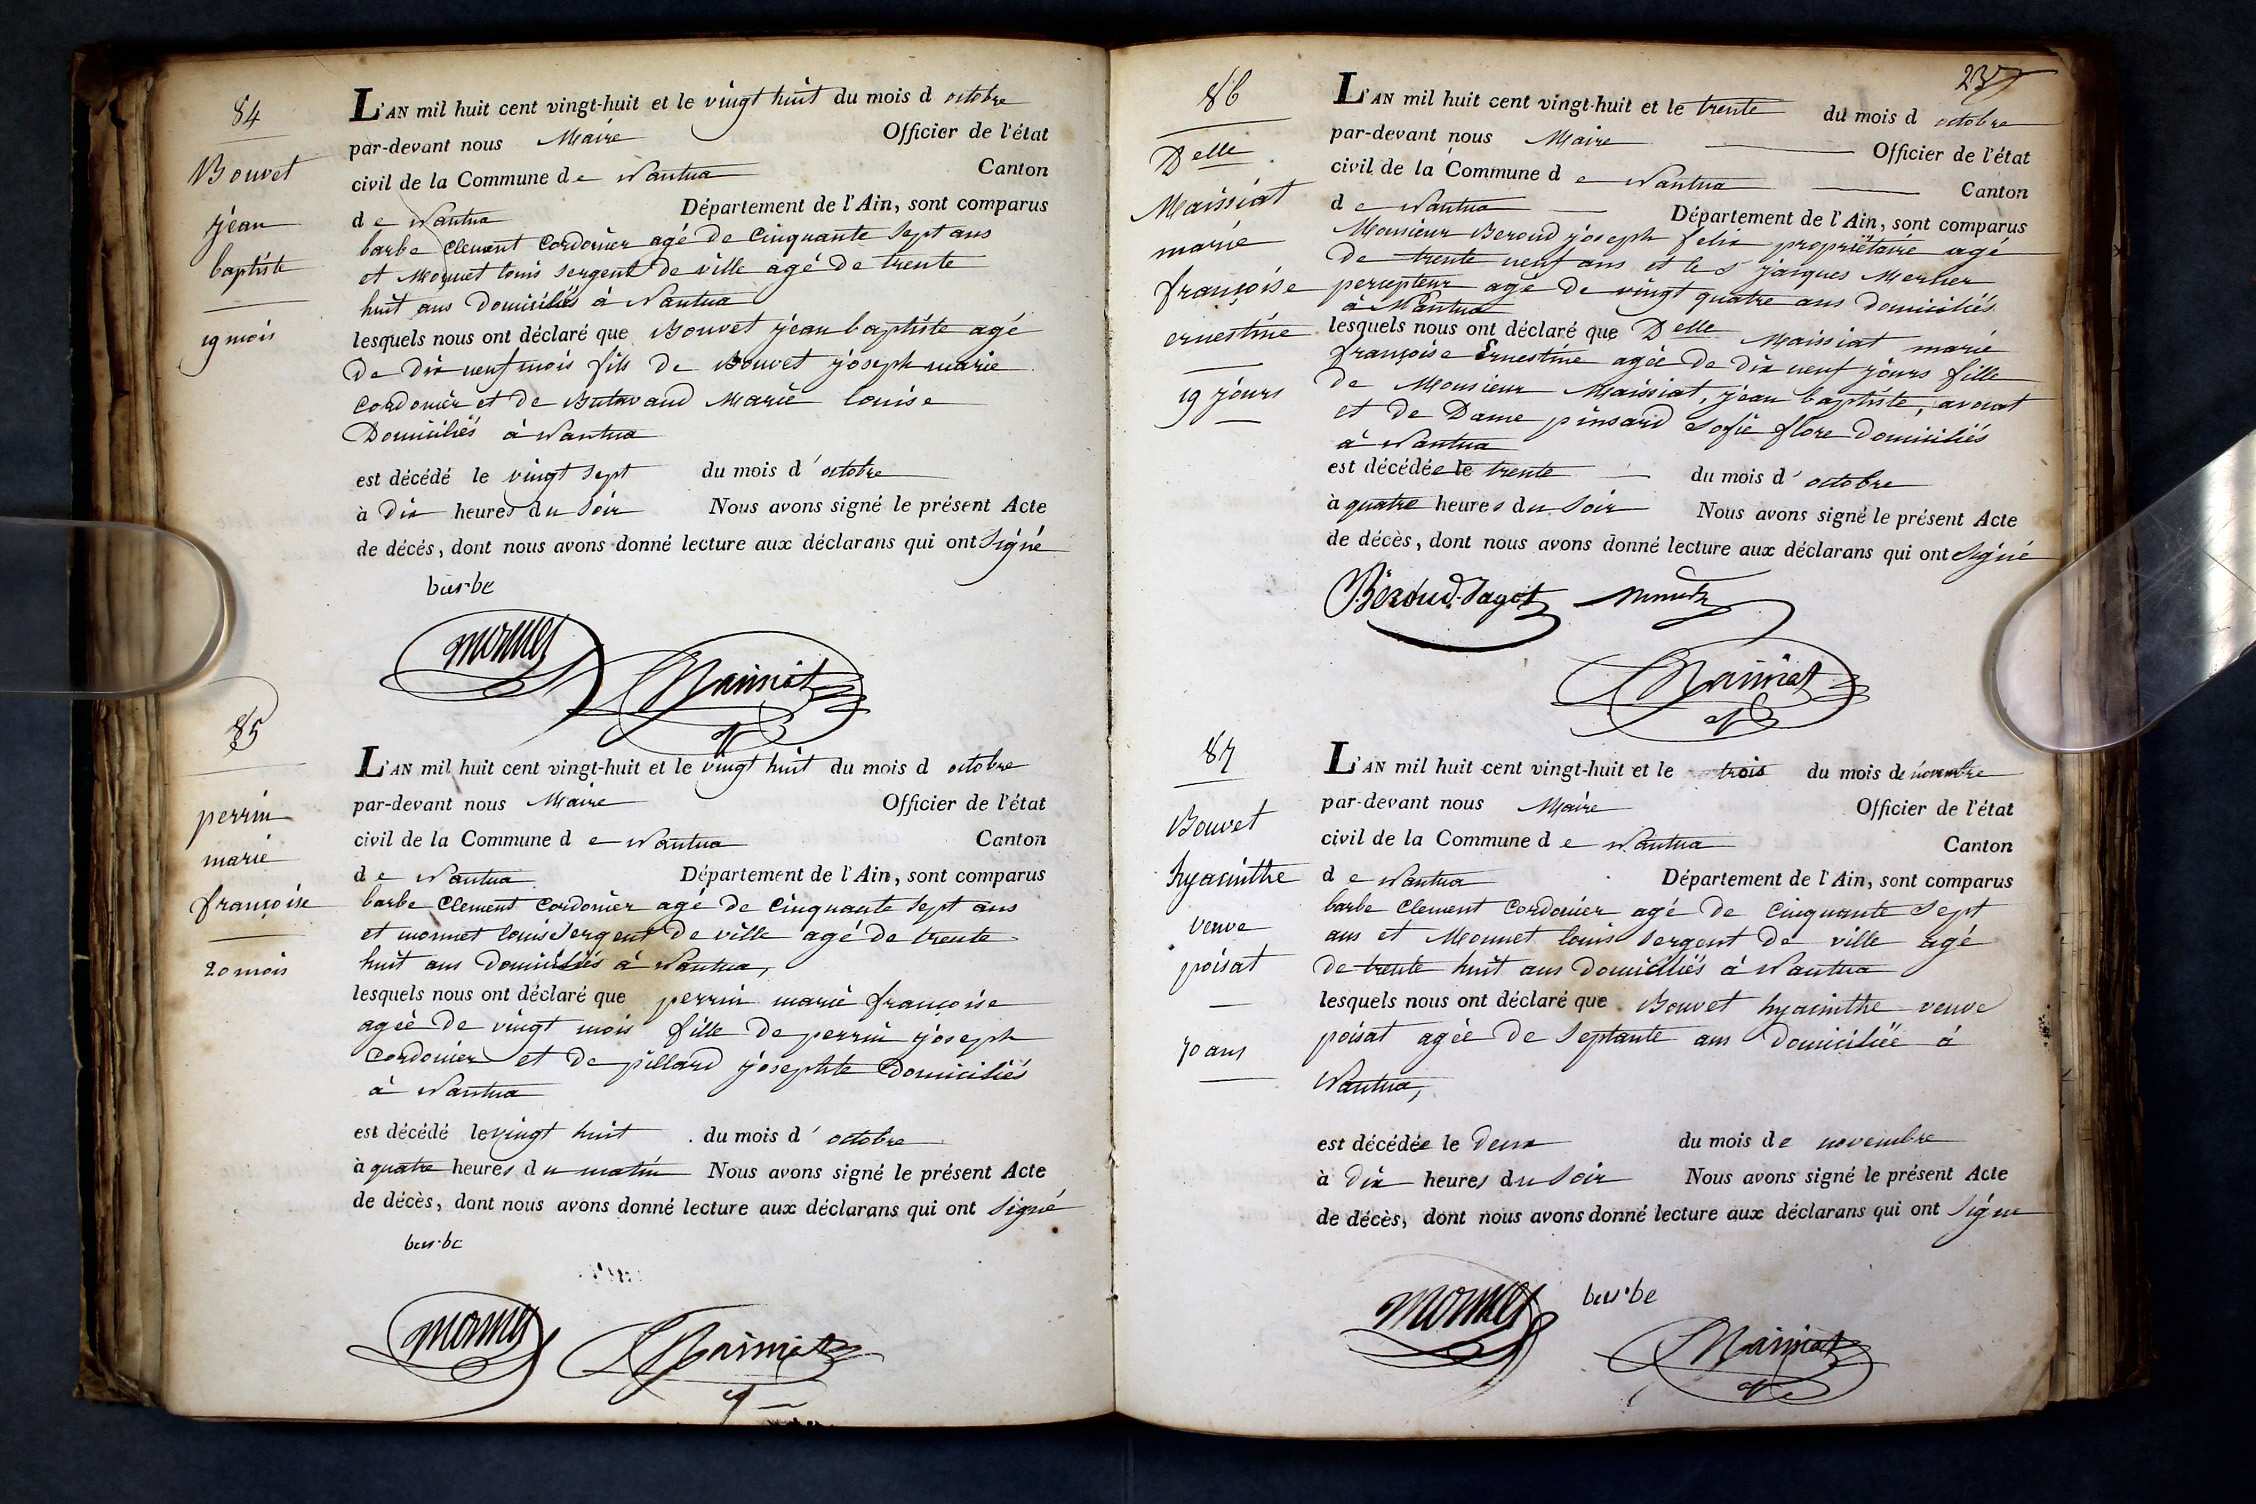 84
Bouvet
jean
baptiste
19 mois
L'AN mil huit cent vingt-huit et le vingt huit du mois d octobre
par-devant nous Maire Officier de l'état
civil de la Commune de Nantua Canton
de Nantua Département de l'Ain, sont comparus
barbe Clement Cordonier agé de Cinquante Sept ans
et Monnet louis Sergent de ville agé de trente
huit ans Domiciliés à Nantua
lesquels nous ont déclaré que Bouvet jean baptiste agé
De dix neuf mois fils de Bouvet joseph marie
Cordonier et de Butavand Marie louise
Domiciliés à Nantua
est décédé le vingt sept du mois d'octobre
à Dix heures du Soir Nous avons signé le présent Acte
de décés, dont nous avons donné lecture aux déclarans qui ont Signé
barbe
monnet
Maissiat
85
perrin
marie
françoise
20 mois
L'AN mil huit cent vingt-huit et le vingt huit du mois d octobre
par-devant nous Maire Officier de l'état
civil de la Commune de Nantua Canton
de Nantua Département de l'Ain, sont comparus
barbe Clement Cordonier agé de Cinquante Sept ans
et monnet louis Sergent De ville agé de trente
huit ans Domiciliés à Nantua,
lesquels nous ont déclaré que perrin marie françoise
agée De vingt mois fille De perrin joseph
Cordonier et De pillard josephte Domiciliés
à Nantua
est décédé le vingt huit du mois d'octobre
à quatre heures du matin Nous avons signé le présent Acte
de décès, dont nous avons donné lecture aux déclarans qui ont Signé
barbe
monnet
Maissiat
237
86
Delle
Maissiat
marie
françoise
ernestine
19 jours
L'AN mil huit cent vingt-huit et le trente du mois d octobre
par-devant nous Maire Officier de l'état
civil de la Commune de Nantua Canton
de Nantua Département de l'Ain, sont comparus
Monsieur Beroud joseph felix propriétaire agé
De trente neuf ans et le s jacques Mercier
percepteur agé De vingt quatre ans Domiciliés
à Nantua
lesquels nous ont déclaré que Delle Maissiat marie
françoise Ernestine agée De dix neuf jours fille
de Monsieur Maissiat, jean baptiste, avocat
et de Dame pinsard Sofie flore Domiciliés
à Nantua
est décédée le trente du mois d'octobre
à quatre heures du Soir Nous avons signé le présent Acte
de décès, dont nous avons donné lecture aux déclarans qui ont Signé
Béroud-Jagot
Maissiat
87
Bouvet
hyacinthe
veuve
poisat
70 ans
L'AN mil huit cent vingt-huit et le trois du mois de novembre
par-devant nous Maire Officier de l'état
civil de la Commune de Nantua Canton
de Nantua Département de l'Ain, sont comparus
barbe Clement Cordonier agé De Cinquante Sept
ans et Monnet louis Sergent De ville agé
De trente huit ans Domiciliés à Nantua
lesquels nous ont déclaré que Bouvet hyacinthe veuve
poisat agée De Septante ans Domiciliée à
Nantua,
est décédée le Deux du mois de novembre
à Dix heures du Soir Nous avons signé le présent Acte
de décès, dont nous avons donné lecture aux déclarans qui ont Signé
monnet barbe
Maissiat